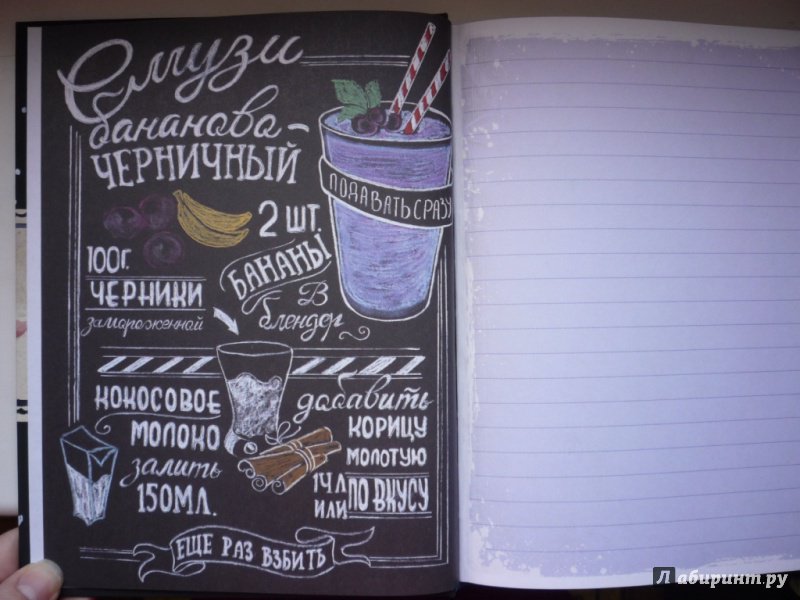 Смузи
бананово-
ЧЕРНИЧНЫЙ
ПОДАВАТЬ СРАЗУ
2 ШТ.
БАНАНЫ
В
блендер
100Г.
ЧЕРНИКИ
замороженной
КОКОСОВОЕ
МОЛОКО
залить
150МЛ.
добавить
КОРИЦУ
МОЛОТУЮ
1 Ч Л
ИЛИ
ПО ВКУСУ
ЕЩЕ РАЗ ВЗБИТЬ
Лабиринт.ру